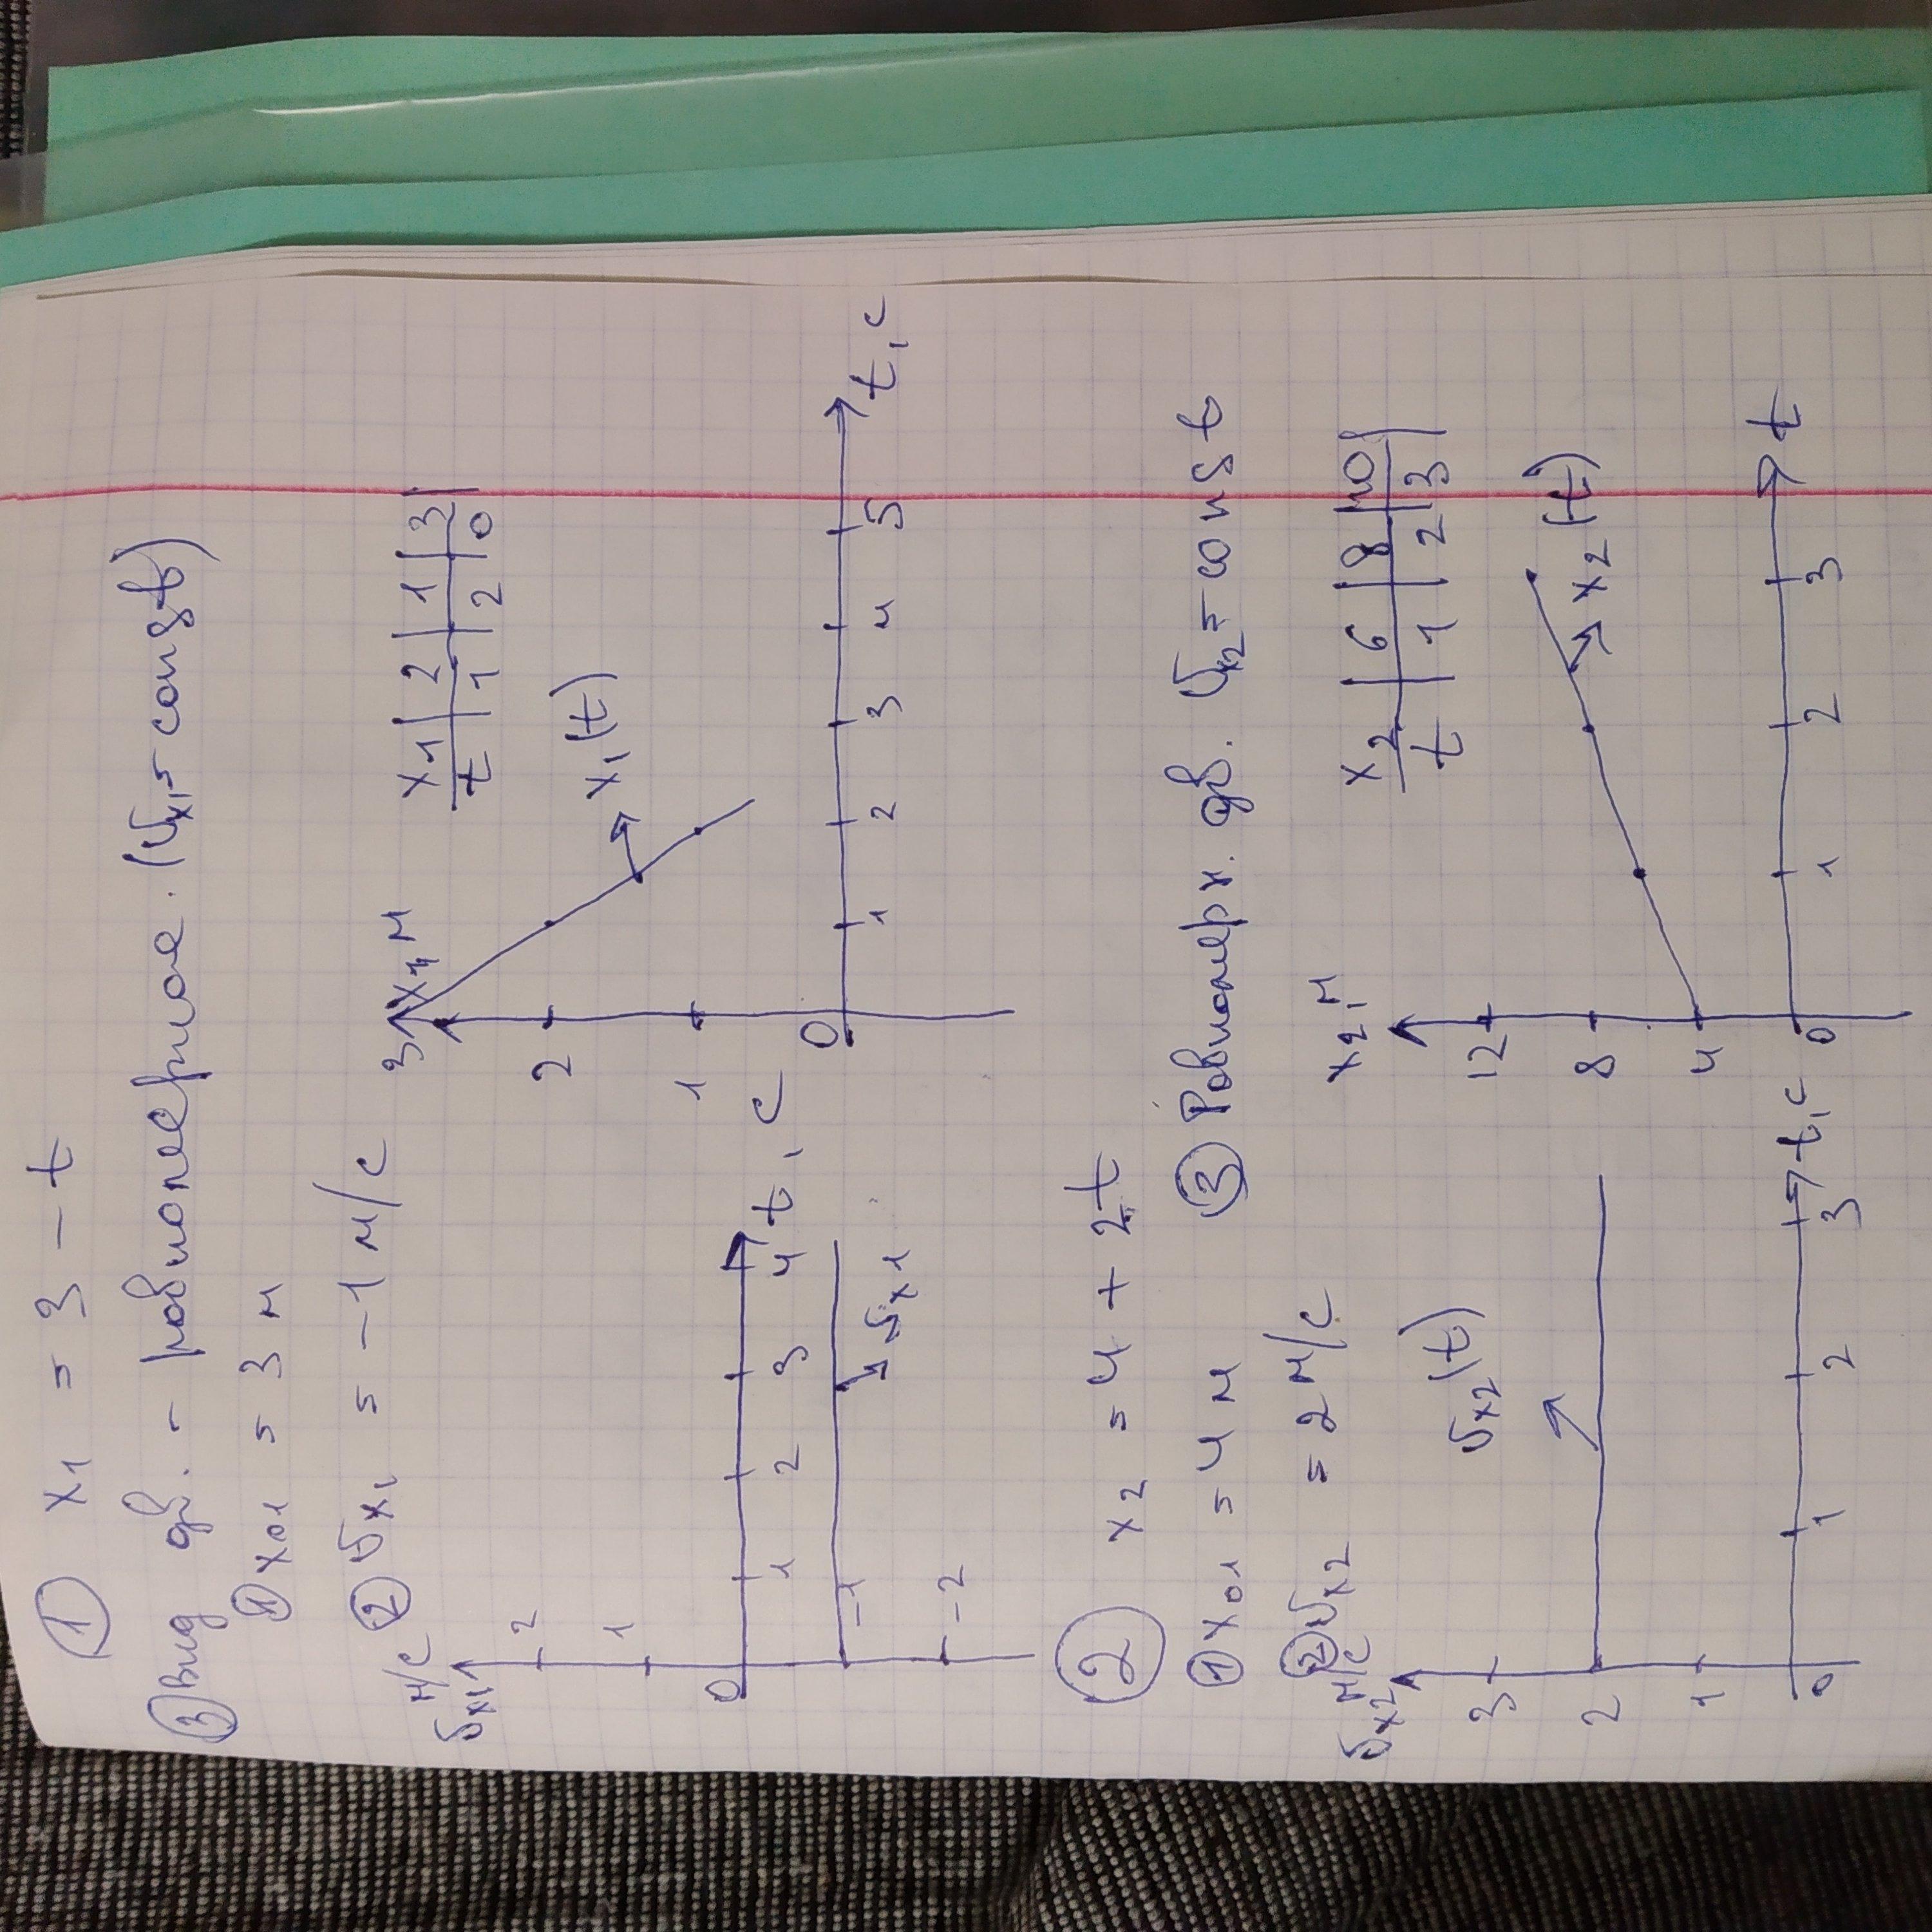 ① x1 = 3 - t
③ Вид дв. - равномерное. (υx1 = const)
① x01 = 3 м
② υx1 = -1 м/с
υx1 м/с
2
1
0
1 2 3 4 t, с
-1
-2
υx1
x1, м
3
2
1
0
1 2 3 4 5 t, с
x1(t)
x1 | 2 | 1 | 3 |
t | 1 | 2 | 0
② x2 = 4 + 2t
① x01 = 4 м
② υx2 = 2 м/с
③ Равномерн. дв. υx2 = const
υx2 м/с
3
2
1
0
1 2 3 t, с
υx2(t)
x2, м
12
8
4
0
1 2 3 t
x2(t)
x2 | 6 | 8 | 10 |
t | 1 | 2 | 3 |